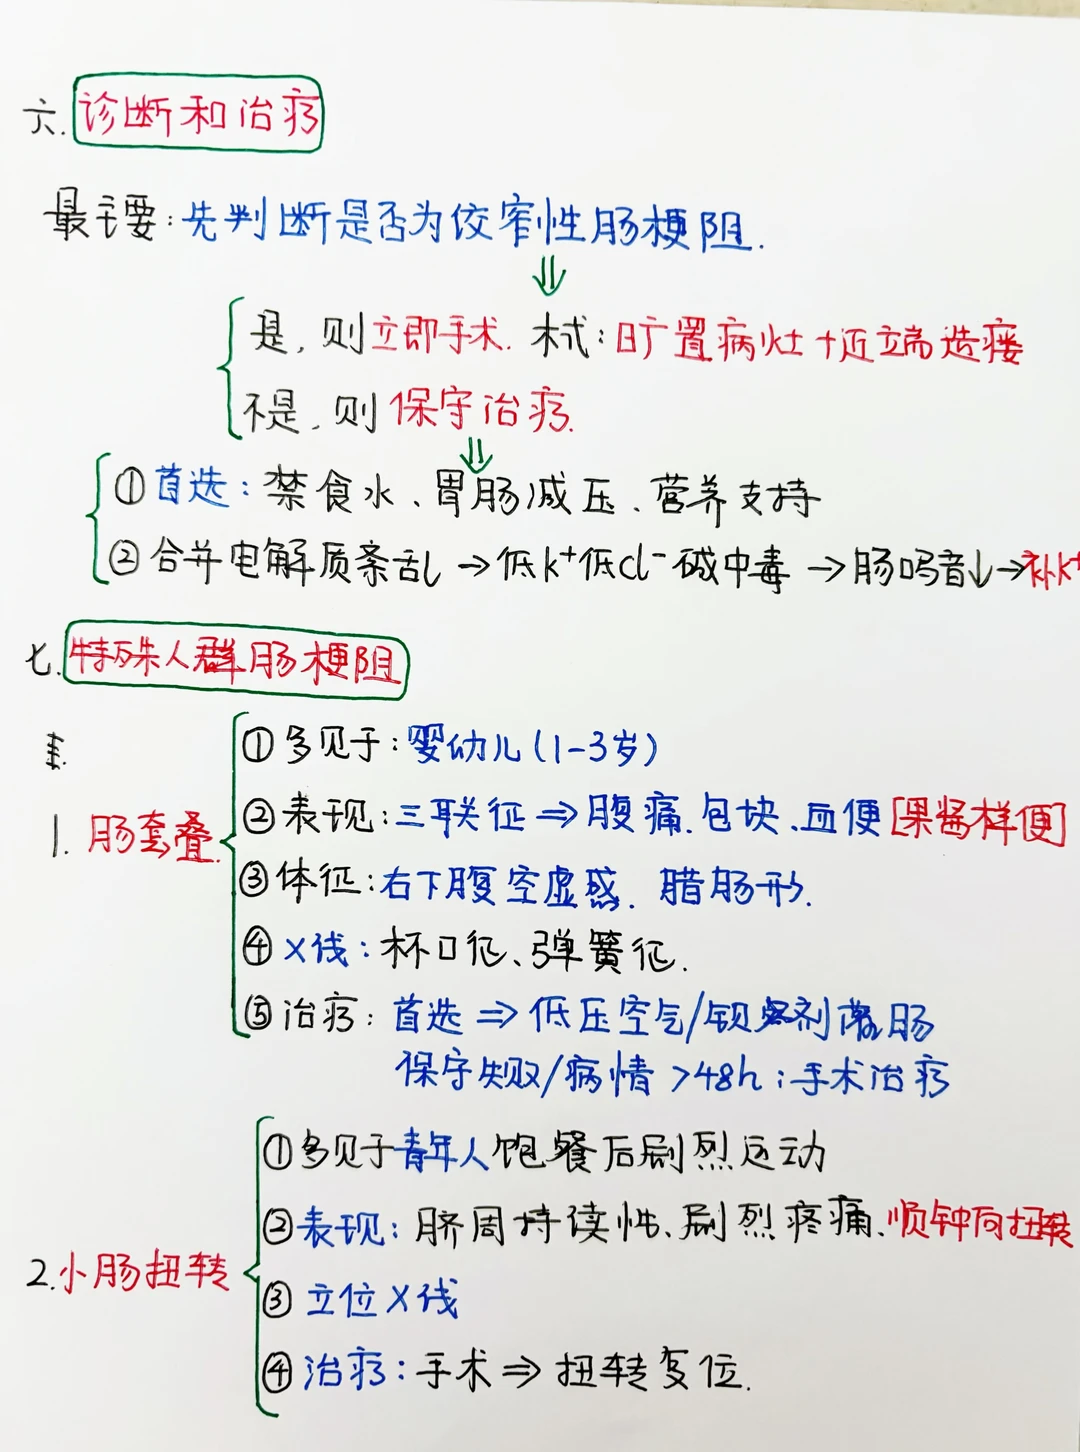 六.诊断和治疗
最主要:先判断是否为佼窄性肠梗阻.
是,则立即手术. 术式:旷置病灶+近端造瘘
不是,则保守治疗.
①首选:禁食水、胃肠减压、营养支持
②合并电解质紊乱→低k⁺低cl⁻碱中毒→肠鸣音↓→补k⁺
七.特殊人群肠梗阻
1.肠套叠.
①多见于:婴幼儿(1-3岁)
②表现:三联征⇒腹痛.包块、血便[果酱样便]
③体征:右下腹空虚感. 腊肠形.
④X线:杯口征、弹簧征.
⑤治疗:首选⇒低压空气/钡剂灌肠
保守失败/病情>48h:手术治疗
2.小肠扭转
①多见于青年人饱餐后剧烈运动
②表现:脐周持续性、剧烈疼痛.顺钟向扭转
③立位X线
④治疗:手术⇒扭转复位.